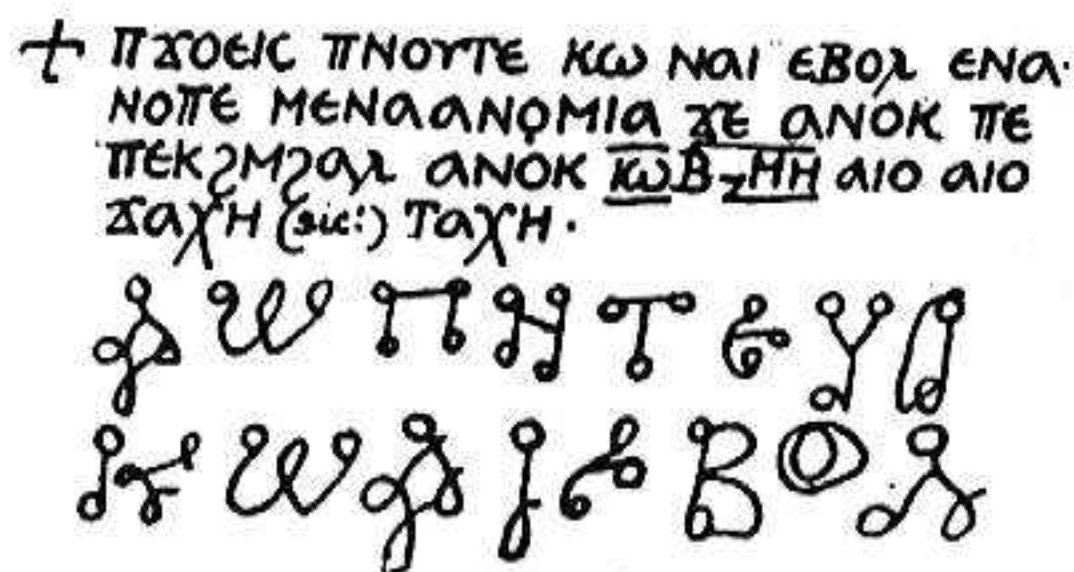 ⲡϫⲟⲉⲓⲥ ⲡⲛⲟⲩⲧⲉ ⲕⲱ ⲛⲁⲓ ⲉⲃⲟⲗ ⲉⲛⲁ·
ⲛⲟⲡⲉ ⲙⲉⲛⲁⲁⲛⲟⲙⲓⲁ ϫⲉ ⲁⲛⲟⲕ ⲡⲉ
ⲡⲉⲕϩⲙϩⲁⲗ ⲁⲛⲟⲕ ⲕⲱⲃⲍⲏⲏ ⲁⲓⲟ ⲁⲓⲟ
ϫⲁⲭⲏ (sic!) ⲧⲁⲭⲏ·
ⲱ ⲡ ⲏ ⲧ ⲉ ⲩ
ⲕ ⲱ ⲁ ⲓ ⲉ ⲃ ⲟ ⲗ